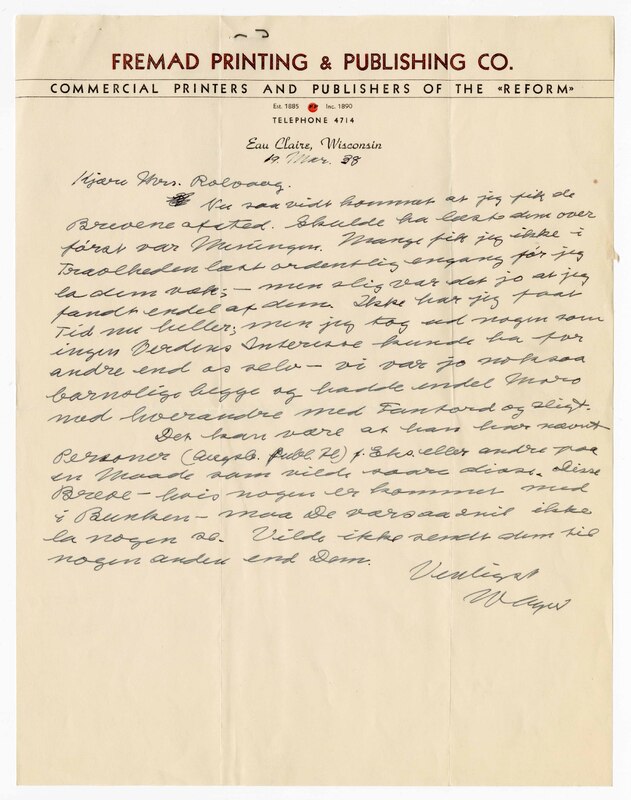 FREMAD PRINTING & PUBLISHING CO.
COMMERCIAL PRINTERS AND PUBLISHERS OF THE «REFORM»
Est. 1885 Inc. 1890
TELEPHONE 4714
Eau Claire, Wisconsin
19. Mar. 38
Kjære Mrs. Rolvaag.
Nu saavidt kommet at jeg fik de
Brevene afsted. Skulde ha læst dem over
først var Meningen. Mange fik jeg ikke i
Travlheden læst ordentlig engang før jeg
la dem væk; – men slig var det jo at jeg
fandt endel af dem. Ikke har jeg faat
Tid nu heller; men jeg tog ud nogen som
ingen Verdens Interesse kunde ha for
andre end os selv – vi var jo noksaa
barnslige begge og hadde endel Moro
med hverandre med Fantord og sligt.
Det kan være at han har nævnt
Personer (Augsb. Publ. H) f. Eks. eller andre paa
en Maade som vilde saare disse. Disse
Breve – hvis nogen er kommet med
i Bunken – maa De varsaasnil ikke
la nogen se. Vilde ikke sendt dem til
nogen anden end Dem.
Venligst
W Ager